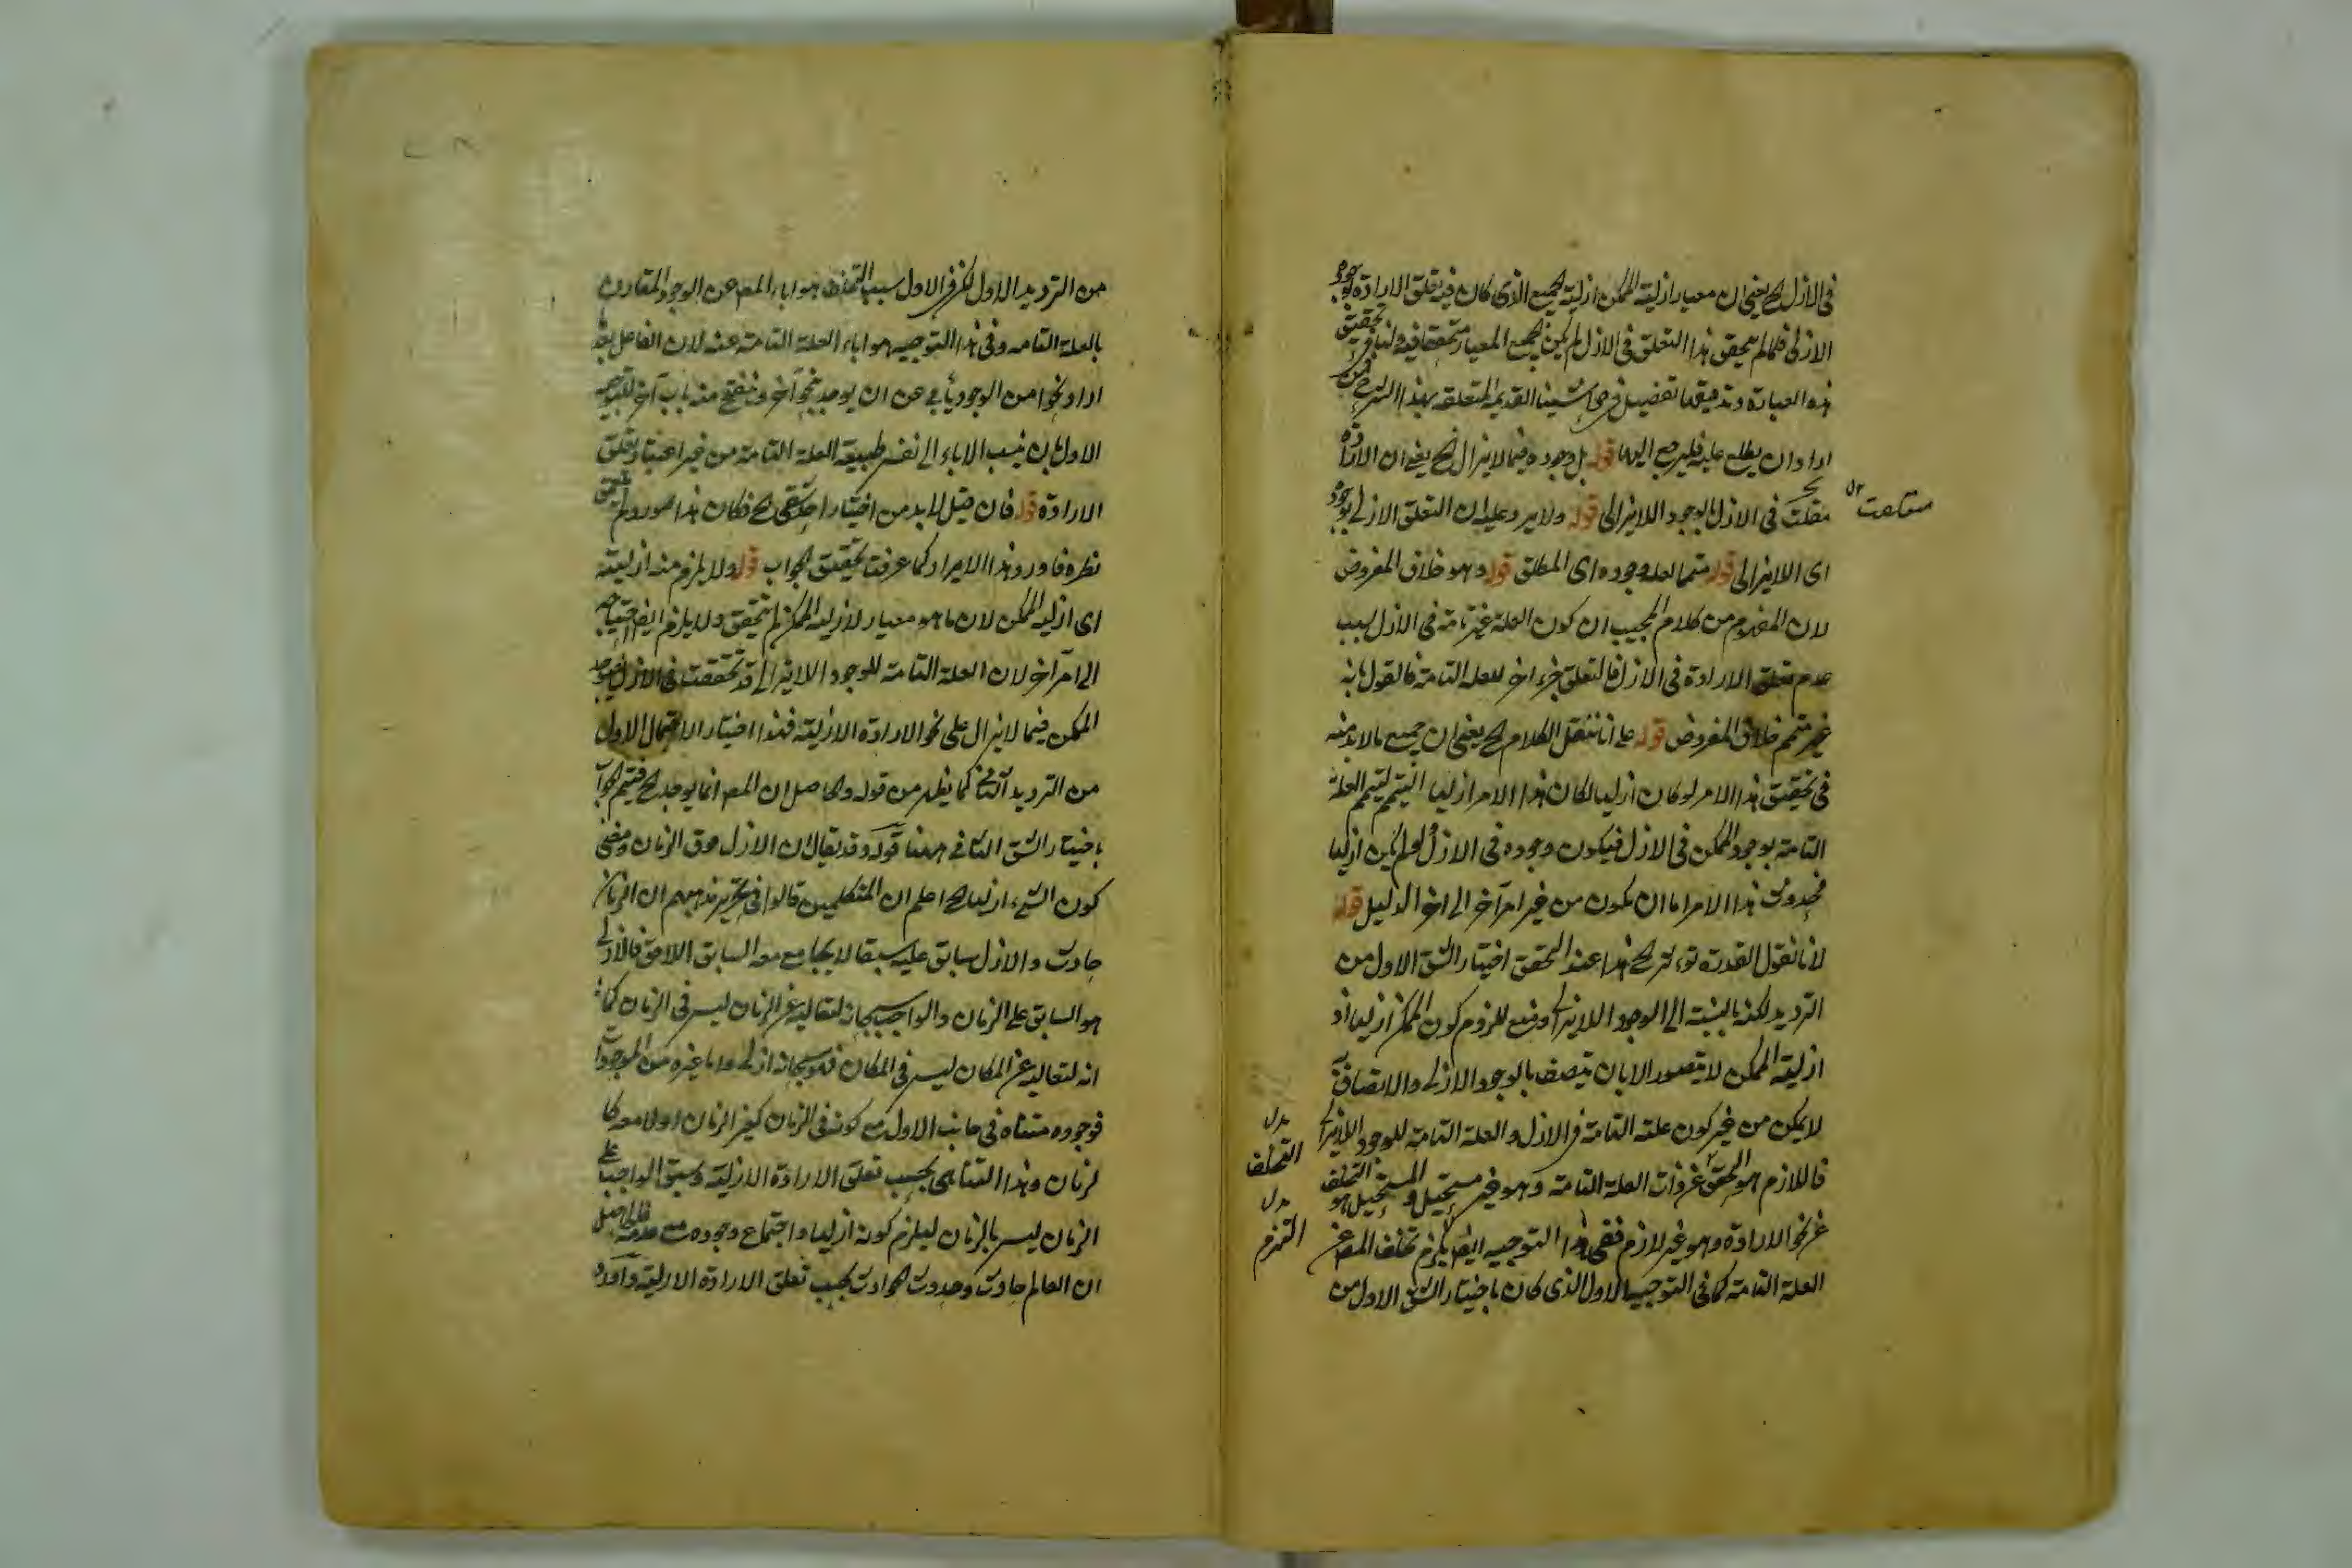 في الازل الخ يعني ان معيار ازلية الممكن ازلية الجميع الذى كان فيه تعلق الارادة بوجوده
الازلى فلما لم يتحقق هذا التعلق في الازل لم يكن الجميع المعيار متحققا فيه ولنا في تحقيق
هذه العبارة وتدقيقها تفصيل في حاشيتنا القديمة المتعلقة بهذا الشرح من
اراد ان يطلع عليه فليرجع اليها قوله بل وجوده فيما لايزال الخ يعني ان الارادة
تعلقت في الازل بالوجود اللايزالى قوله ولا يرد عليه ان التعلق الازلى بوجوده
اى اللايزالى قوله متمما لعلة وجوده اى المطلق قوله وهو خلاف المفروض
لان المفهوم من كلام المجيب ان كون العلة غير تامة في الازل بسبب
عدم تعلق الارادة في الازل فالتعلق جزء اخر للعلة التامة فالقول بانه
غير متمم خلاف المفروض قوله على انا ننقل الكلام الخ يعني ان جميع مالابد منه
في تحقيق هذا الامر لو كان ازليا لكان هذا الامر ازليا فيتم العلة
التامة بوجود الممكن في الازل فيكون وجوده في الازل ولو لم يكن ازليا
فحدوث هذا الامر اما ان يكون من غير امر آخر الى اخر الدليل قوله
لانا نقول القدرة تؤثر الخ هذا عند المحقق اختيار الشق الاول من
الترديد لكنه بالنسبة الى الوجود اللايزالى ومنع للزوم كون الممكن ازليا اذ
ازلية الممكن لايتصور الا بان يتصف بالوجود الازلى والاتصاف به
لايمكن من غير كون علته التامة في الازل والعلة التامة للوجود اللايزالى
فاللازم هو التحقق عن ذات العلة التامة وهو غير مستحيل والمستحيل هو التخلف
عن نحو الارادة وهو غير لازم ففي هذا التوجيه ايضا يلزم تخلف المعه عن
العلة التامة كما في التوجيه الاول الذى كان باختيار الشق الاول من
بدل
التخلف
بدل
التزم
من الترديد الاول لكن في الاول سبب التخلف هو اباء المعه عن الوجود المقارن
بالعلة التامة وفي هذا التوجيه هو اباء العلة التامة عنه لان الفاعل
اراد نحوا من الوجود يأبى عن ان يوجد بنحو آخر وينفتح منه باب آخر للتوجيه
الاول بان ينسب الاباء الى نفس طبيعة العلة التامة من غير اعتبار تعلق
الارادة قوله فان قيل لابد من اختيار احد شقى الخ فكان هذا المورد لم
نظره فاورد هذا الايراد كما عرفت تحقيق الجواب قوله ولا يلزم منه ازليته
اى ازلية الممكن لان ما هو معيار لازلية الممكن لم يتحقق ولا يلزم ايضا احتياجه
الى امر آخر لان العلة التامة للوجود اللايزالى قد تحققت في الازل فيوجد
الممكن فيما لايزال على نحو الارادة الازلية فهذا اختيار الاحتمال الاول
من الترديد الثانى كما يظهر من قوله والحاصل ان المعه انما يوجد الخ فيتم الجواب
باختيار الشق الثانى ههنا قوله وقد يقال ان الازل فوق الزمان ومعنى
كون الشىء ازليا الخ اعلم ان المتكلمين قالوا في تحرير مذهبهم ان الزمان
حادث والازل سابق عليه سبقا لايجامع معه السابق اللاحق فالازلى
هو السابق على الزمان والواجب سبحانه لتعاليه عن الزمان ليس في الزمان كما
انه لتعاليه عن المكان ليس في المكان فهو سبحانه ازلى واما غيره من الموجودات
فوجوده متناه في جانب الاول مع كونه في الزمان كغير الزمان اولا معه كا
لزمان وهذا التناهى بحسب تعلق الارادة الازلية وسبق الواجب على
الزمان ليس بالزمان ليلزم كونه ازليا واجتماع وجوده مع عدمه
ان العالم حادث وحدوث الحوادث بحسب تعلق الارادة الازلية واورد